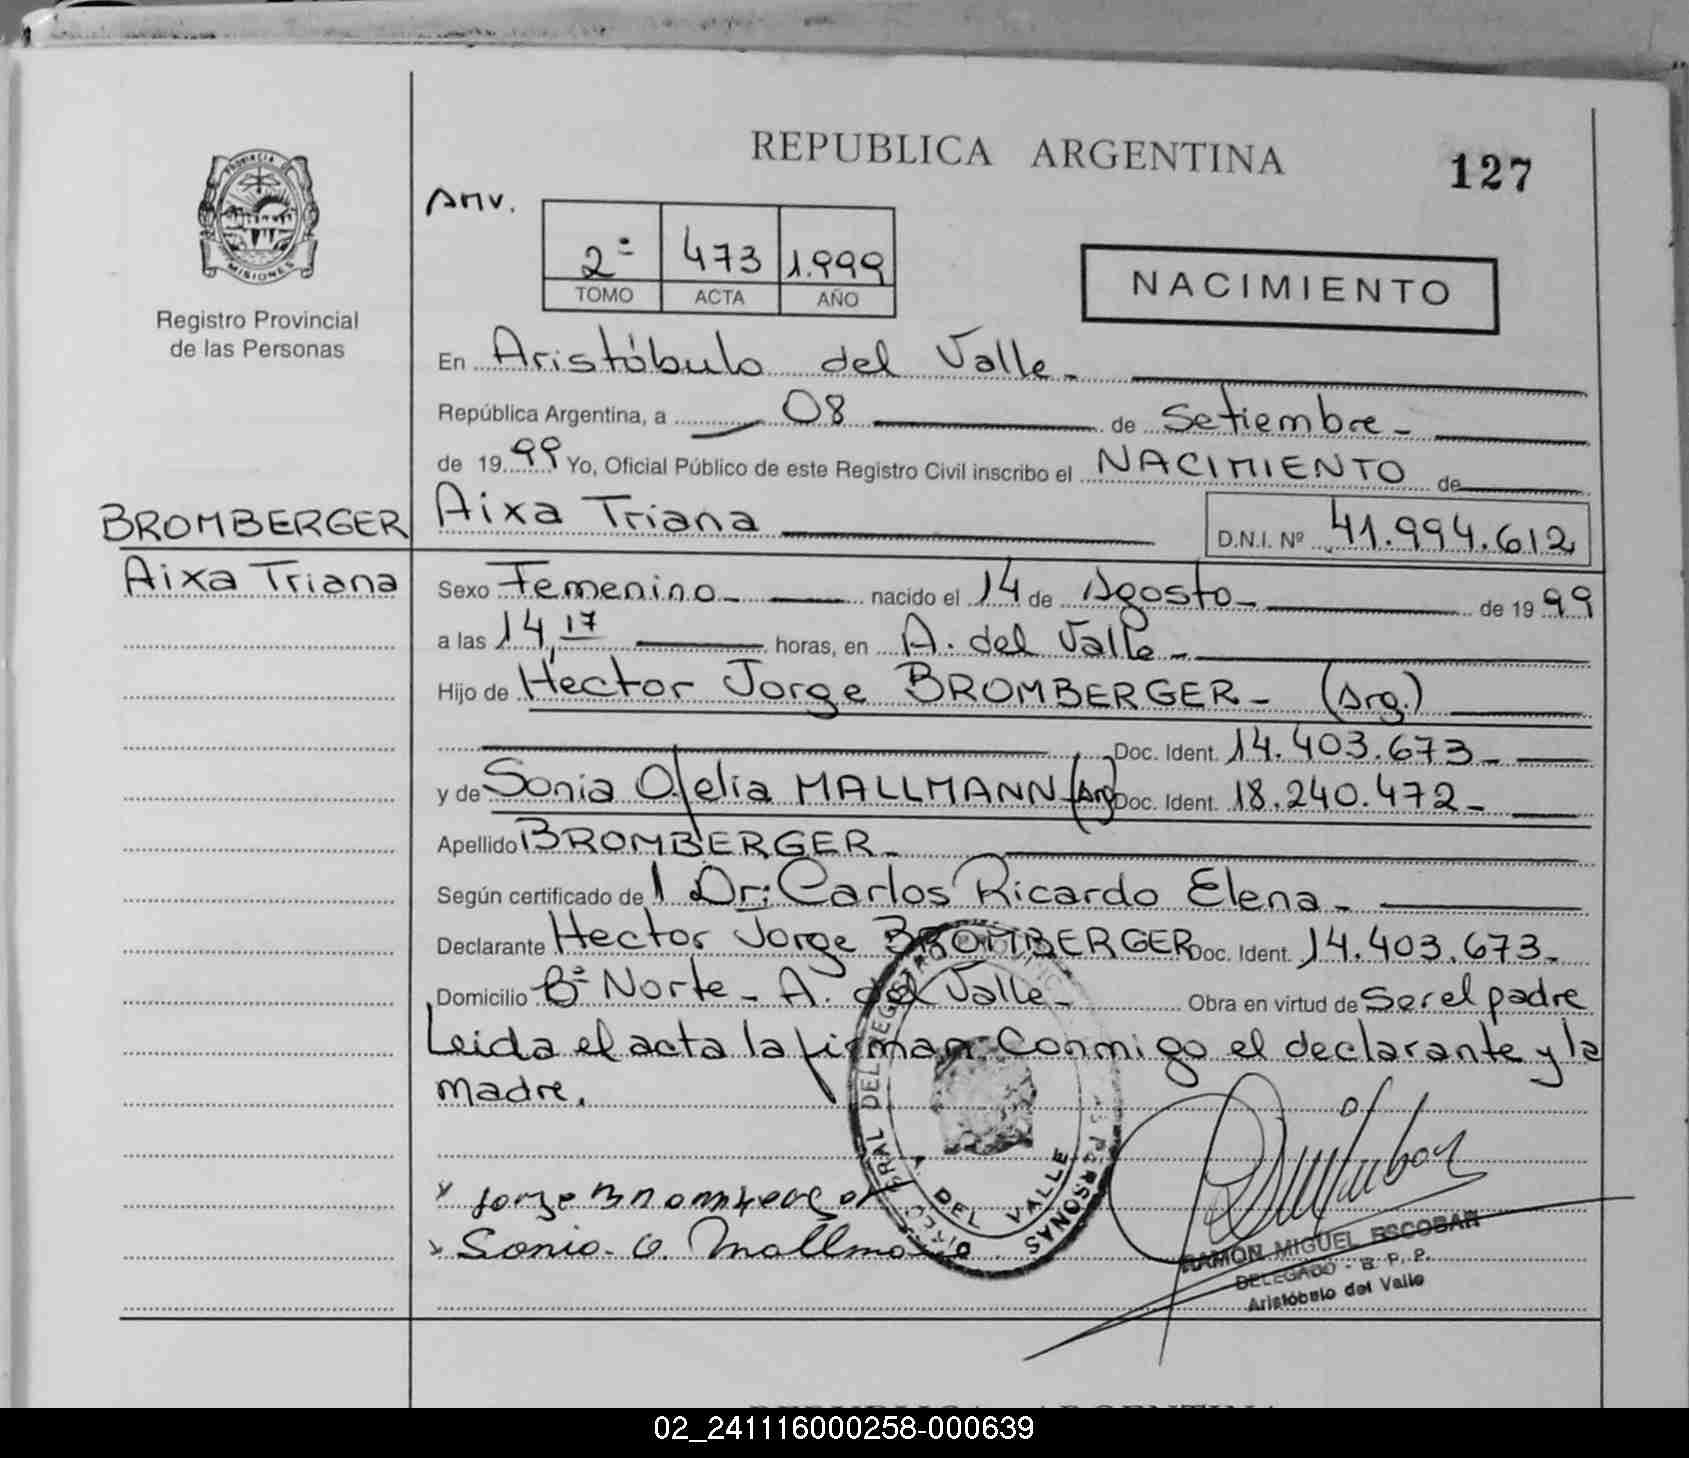 REPUBLICA ARGENTINA
127
PROVINCIA DE
MISIONES
Registro Provincial
de las Personas
2º 473 1.999
TOMO ACTA AÑO
NACIMIENTO
En Aristóbulo del Valle-
República Argentina, a 08 de Setiembre-
de 1999 Yo, Oficial Público de este Registro Civil inscribo el NACIMIENTO de
BROMBERGER
Aixa Triana
Aixa Triana D.N.I. Nº 41.994.612
Sexo Femenino- nacido el 14 de Agosto- de 1999
a las 14,17 horas, en A. del Valle-
Hijo de Hector Jorge BROMBERGER- (Arg.)
Doc. Ident. 14.403.673-
y de Sonia Ofelia MALLMANN-(Arg) Doc. Ident. 18.240.472-
Apellido BROMBERGER-
Según certificado de Dr: Carlos Ricardo Elena-
Declarante Hector Jorge BROMBERGER Doc. Ident. 14.403.673-
Domicilio Bº Norte- A. del Valle- Obra en virtud de Ser el padre
Leida el acta la firman Conmigo el declarante y la
madre.
Jorge Bromberger
Sonia O. Mallmann
DEL VALLE
RAMON MIGUEL ESCOBAR
DELEGADO - R. P. P.
Aristóbulo del Valle
REPUBLICA ARGENTINA
02_241116000258-000639